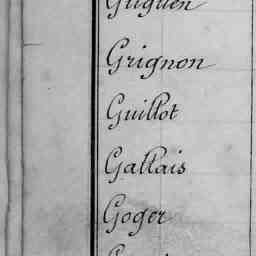 Grignon
Guillot
Gallais
Goger